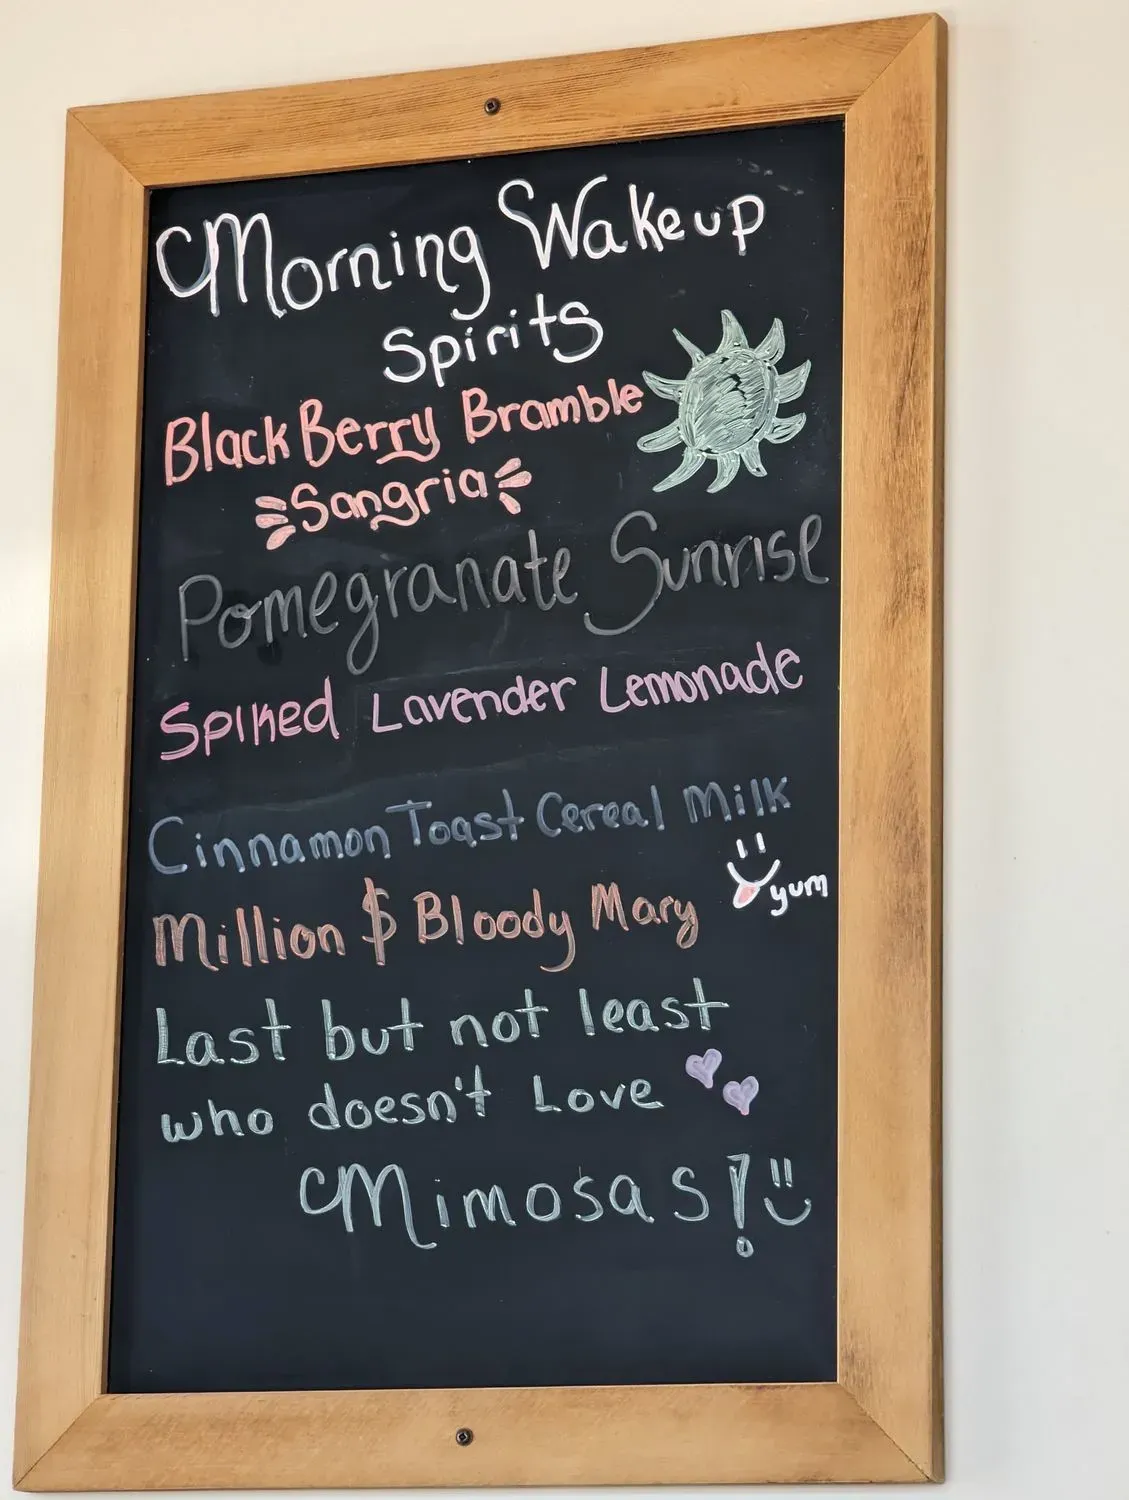 Morning Wakeup
Spirits
BlackBerry Bramble
Sangria
Pomegranate Sunrise
Spiked Lavender Lemonade
Cinnamon Toast Cereal Milk
yum
Million $ Bloody Mary
Last but not least
who doesn't Love
Mimosas!